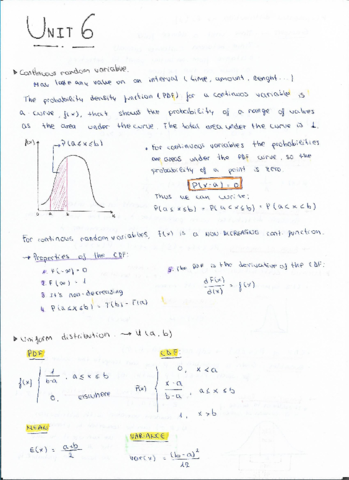 UNIT 6
Continuous random variable.
May take any value on an interval (time, amount, height...)
The probability density function (PDF) for a continuous variable is
a curve, f(x), that shows the probability of a range of values
as the area under the curve. The total area under the curve is 1.
f(x)
P(a≤x≤b)
a b
• For continuous variables the probabilities
are areas under the PDF curve, so the
probability of a point is zero.
P(x=a)=0
Thus we can write:
P(a≤x≤b) = P(a<x≤b) = P(a≤x<b)
For continuous random variables, F(x) is a NON DECREASING cont. function.
→ Properties of the CDF:
F(-∞)=0
F(∞)=1
It's non-decreasing
P(a≤x≤b) = F(b)-F(a)
The PDF is the derivative of the CDF:
dF(x)/d(x) = f(x)
Uniform distribution → U(a,b)
PDF
f(x) { 1/b-a, a≤x≤b
0, elsewhere
CDF
F(x) { 0, x≤a
x-a/b-a, a≤x≤b
1, x>b
MEAN
E(x) = a+b/2
VARIANCE
Var(x) = (b-a)²/12